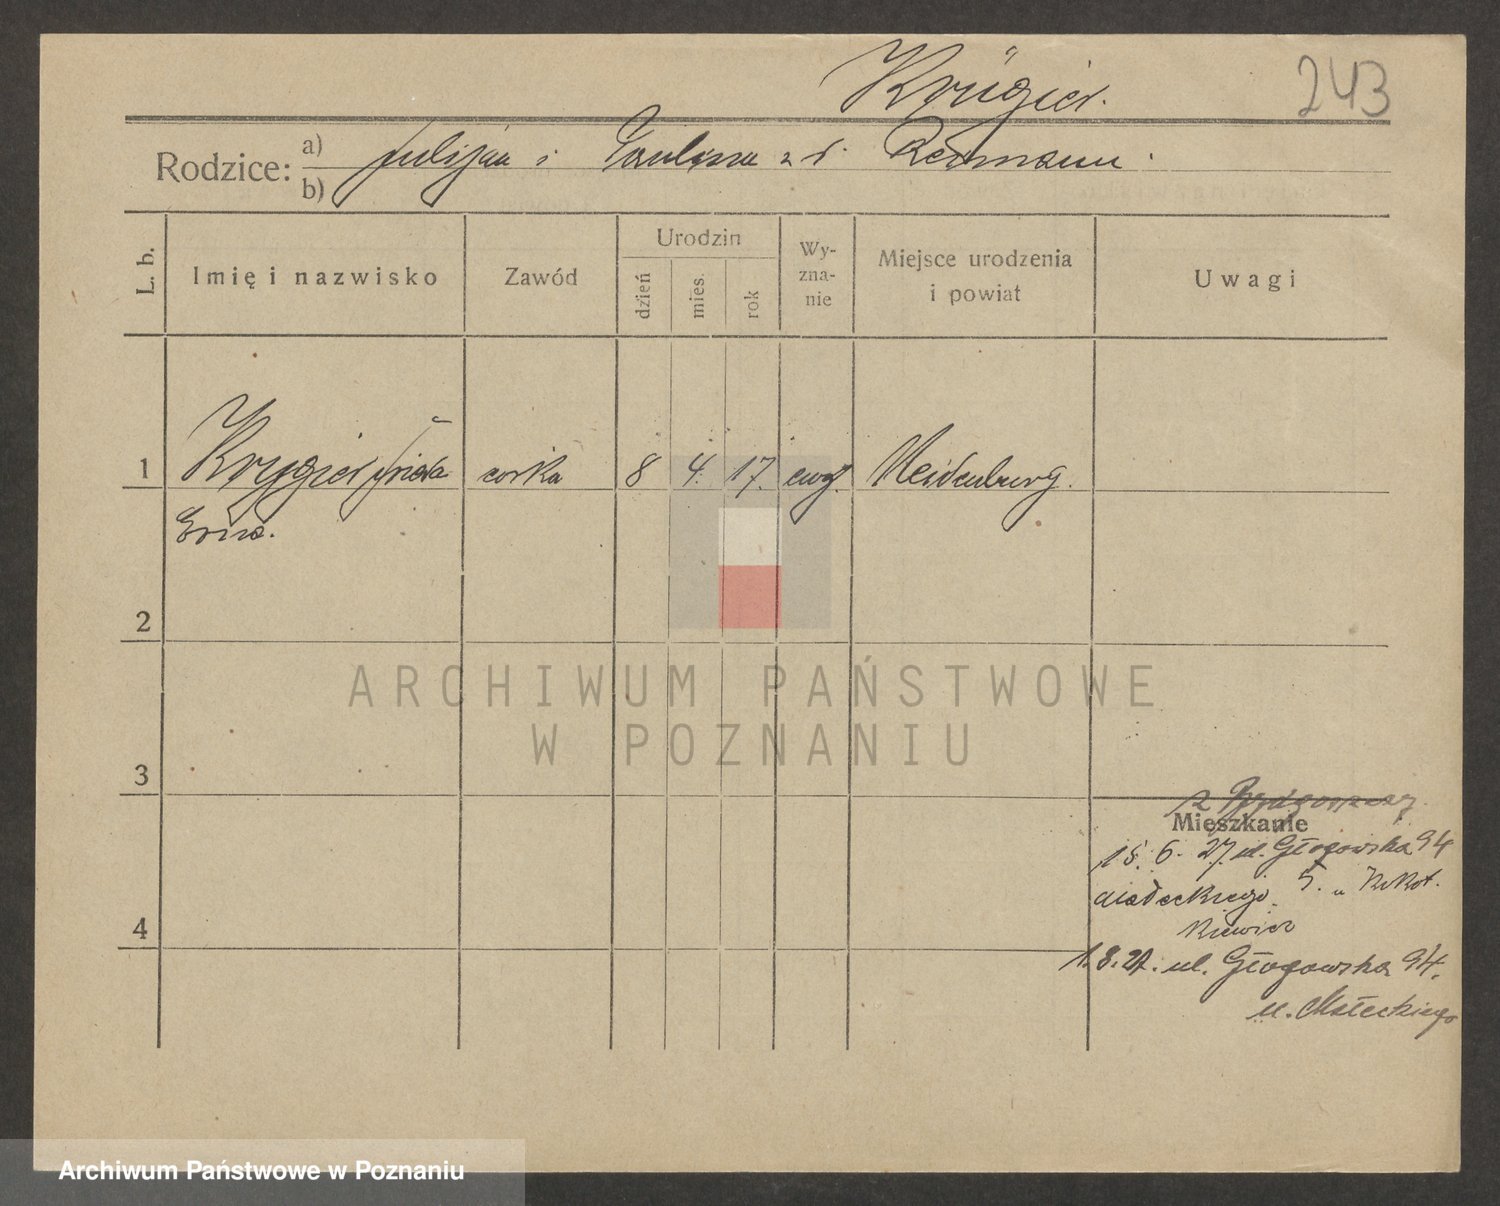 Krügier.
243
Rodzice: a) Julijan i Paulina z d. Redmann.
b)
L. b.
Imię i nazwisko
Zawód
Urodzin
dzień
mies.
rok
Wy-
zna-
nie
Miejsce urodzenia
i powiat
Uwagi
1 Krügier Frida córka 8 4. 17. ewg. Neidenburg.
Erna.
2
3
z Bydgoszczy
Mieszkanie
15. 6. 27. ul. Głogowska 94
5. u
kiewicz
4
1.8.27. ul. Głogowska 94.
u. Małeckiego
ARCHIWUM PAŃSTWOWE
W POZNANIU
Archiwum Państwowe w Poznaniu